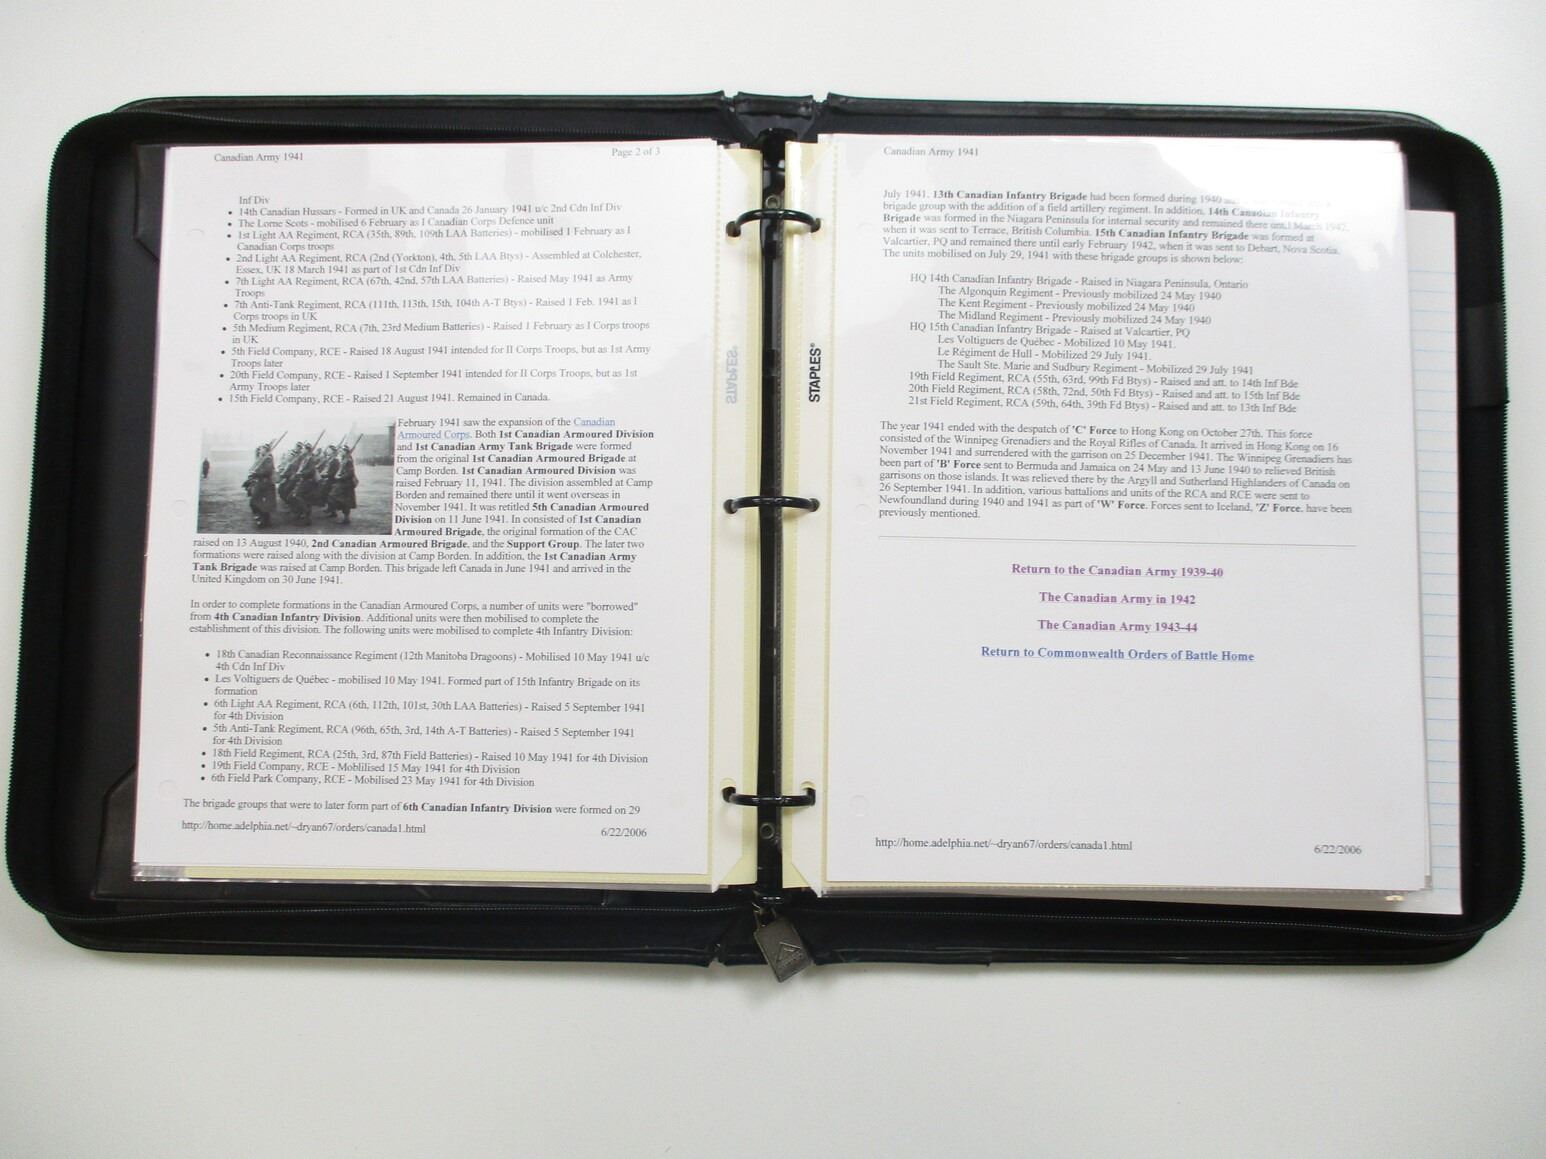 Canadian Army 1941
Page 2 of 3
Inf Div
• 14th Canadian Hussars - Formed in UK and Canada 26 January 1941 u/c 2nd Cdn Inf Div
• The Lorne Scots - mobilised 6 February as I Canadian Corps Defence unit
• 1st Light AA Regiment, RCA (35th, 89th, 109th LAA Batteries) - mobilised 1 February as I
Canadian Corps troops
• 2nd Light AA Regiment, RCA (2nd (Yorkton), 4th, 5th LAA Btys) - Assembled at Colchester,
Essex, UK 18 March 1941 as part of 1st Cdn Inf Div
• 7th Light AA Regiment, RCA (67th, 42nd, 57th LAA Batteries) - Raised May 1941 as Army
Troops
• 7th Anti-Tank Regiment, RCA (111th, 113th, 15th, 104th A-T Btys) - Raised 1 Feb. 1941 as I
Corps troops in UK
• 5th Medium Regiment, RCA (7th, 23rd Medium Batteries) - Raised 1 February as I Corps troops
in UK
• 5th Field Company, RCE - Raised 18 August 1941 intended for II Corps Troops, but as 1st Army
Troops later
• 20th Field Company, RCE - Raised 1 September 1941 intended for II Corps Troops, but as 1st
Army Troops later
• 15th Field Company, RCE - Raised 21 August 1941. Remained in Canada.
February 1941 saw the expansion of the Canadian
Armoured Corps. Both 1st Canadian Armoured Division
and 1st Canadian Army Tank Brigade were formed
from the original 1st Canadian Armoured Brigade at
Camp Borden. 1st Canadian Armoured Division was
raised February 11, 1941. The division assembled at Camp
Borden and remained there until it went overseas in
November 1941. It was retitled 5th Canadian Armoured
Division on 11 June 1941. In consisted of 1st Canadian
Armoured Brigade, the original formation of the CAC
raised on 13 August 1940, 2nd Canadian Armoured Brigade, and the Support Group. The later two
formations were raised along with the division at Camp Borden. In addition, the 1st Canadian Army
Tank Brigade was raised at Camp Borden. This brigade left Canada in June 1941 and arrived in the
United Kingdom on 30 June 1941.
In order to complete formations in the Canadian Armoured Corps, a number of units were "borrowed"
from 4th Canadian Infantry Division. Additional units were then mobilised to complete the
establishment of this division. The following units were mobilised to complete 4th Infantry Division:
• 18th Canadian Reconnaissance Regiment (12th Manitoba Dragoons) - Mobilised 10 May 1941 u/c
4th Cdn Inf Div
• Les Voltiguers de Québec - mobilised 10 May 1941. Formed part of 15th Infantry Brigade on its
formation
• 6th Light AA Regiment, RCA (6th, 112th, 101st, 30th LAA Batteries) - Raised 5 September 1941
for 4th Division
• 5th Anti-Tank Regiment, RCA (96th, 65th, 3rd, 14th A-T Batteries) - Raised 5 September 1941
for 4th Division
• 18th Field Regiment, RCA (25th, 3rd, 87th Field Batteries) - Raised 10 May 1941 for 4th Division
• 19th Field Company, RCE - Moblilised 15 May 1941 for 4th Division
• 6th Field Park Company, RCE - Mobilised 23 May 1941 for 4th Division
The brigade groups that were to later form part of 6th Canadian Infantry Division were formed on 29
http://home.adelphia.net/~dryan67/orders/canada1.html
6/22/2006
STAPLES®
STAPLES®
Canadian Army 1941
July 1941. 13th Canadian Infantry Brigade had been formed during 1940
brigade group with the addition of a field artillery regiment. In addition, 14th Canadian Infantry
Brigade was formed in the Niagara Peninsula for internal security and remained there until March 1942,
when it was sent to Terrace, British Columbia. 15th Canadian Infantry Brigade was formed at
Valcartier, PQ and remained there until early February 1942, when it was sent to Debart, Nova Scotia.
The units mobilised on July 29, 1941 with these brigade groups is shown below:
HQ 14th Canadian Infantry Brigade - Raised in Niagara Peninsula, Ontario
The Algonquin Regiment - Previously mobilized 24 May 1940
The Kent Regiment - Previously mobilized 24 May 1940
The Midland Regiment - Previously mobilized 24 May 1940
HQ 15th Canadian Infantry Brigade - Raised at Valcartier, PQ
Les Voltigueurs de Québec - Mobilized 10 May 1941.
Le Régiment de Hull - Mobilized 29 July 1941.
The Sault Ste. Marie and Sudbury Regiment - Mobilized 29 July 1941
19th Field Regiment, RCA (55th, 63rd, 99th Fd Btys) - Raised and att. to 14th Inf Bde
20th Field Regiment, RCA (58th, 72nd, 50th Fd Btys) - Raised and att. to 15th Inf Bde
21st Field Regiment, RCA (59th, 64th, 39th Fd Btys) - Raised and att. to 13th Inf Bde
The year 1941 ended with the despatch of 'C' Force to Hong Kong on October 27th. This force
consisted of the Winnipeg Grenadiers and the Royal Rifles of Canada. It arrived in Hong Kong on 16
November 1941 and surrendered with the garrison on 25 December 1941. The Winnipeg Grenadiers has
been part of 'B' Force sent to Bermuda and Jamaica on 24 May and 13 June 1940 to relieved British
garrisons on those islands. It was relieved there by the Argyll and Sutherland Highlanders of Canada on
26 September 1941. In addition, various battalions and units of the RCA and RCE were sent to
Newfoundland during 1940 and 1941 as part of 'W' Force. Forces sent to Iceland, 'Z' Force, have been
previously mentioned.
Return to the Canadian Army 1939-40
The Canadian Army in 1942
The Canadian Army 1943-44
Return to Commonwealth Orders of Battle Home
http://home.adelphia.net/~dryan67/orders/canada1.html
6/22/2006